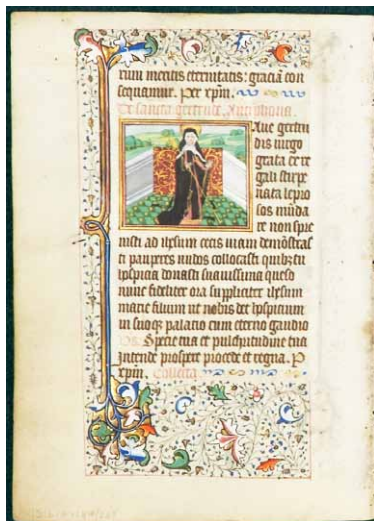 rum meritis eternitatis: graciã con
sequamur. Per xpm̃.
De sancta gertrude. Antiphona.
Aue gertru
dis uirgo
grata ex re
gali stirpe
nata lepro
sos mũda
re non spre
uisti ad ihesum cecis uiam demõstras
ti pauperes nudos collocasti quibus tu
hospicia donasti suauissima queso
nunc fideliter ora suppliciter ihesum
marie filium ut nobis det hospicium
in suoq; palatio cum eterno gaudio
Specie tua et pulchritudine tua
Intende prospere procede et regna. P
xpm̃. Collecta